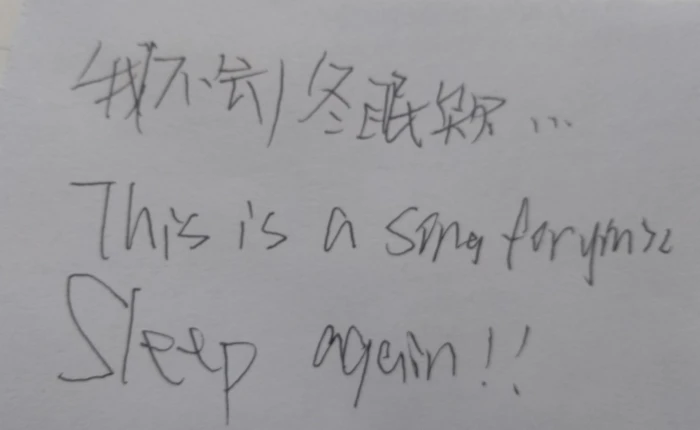 我不会冬眠...
This is a song for
Sleep again!!